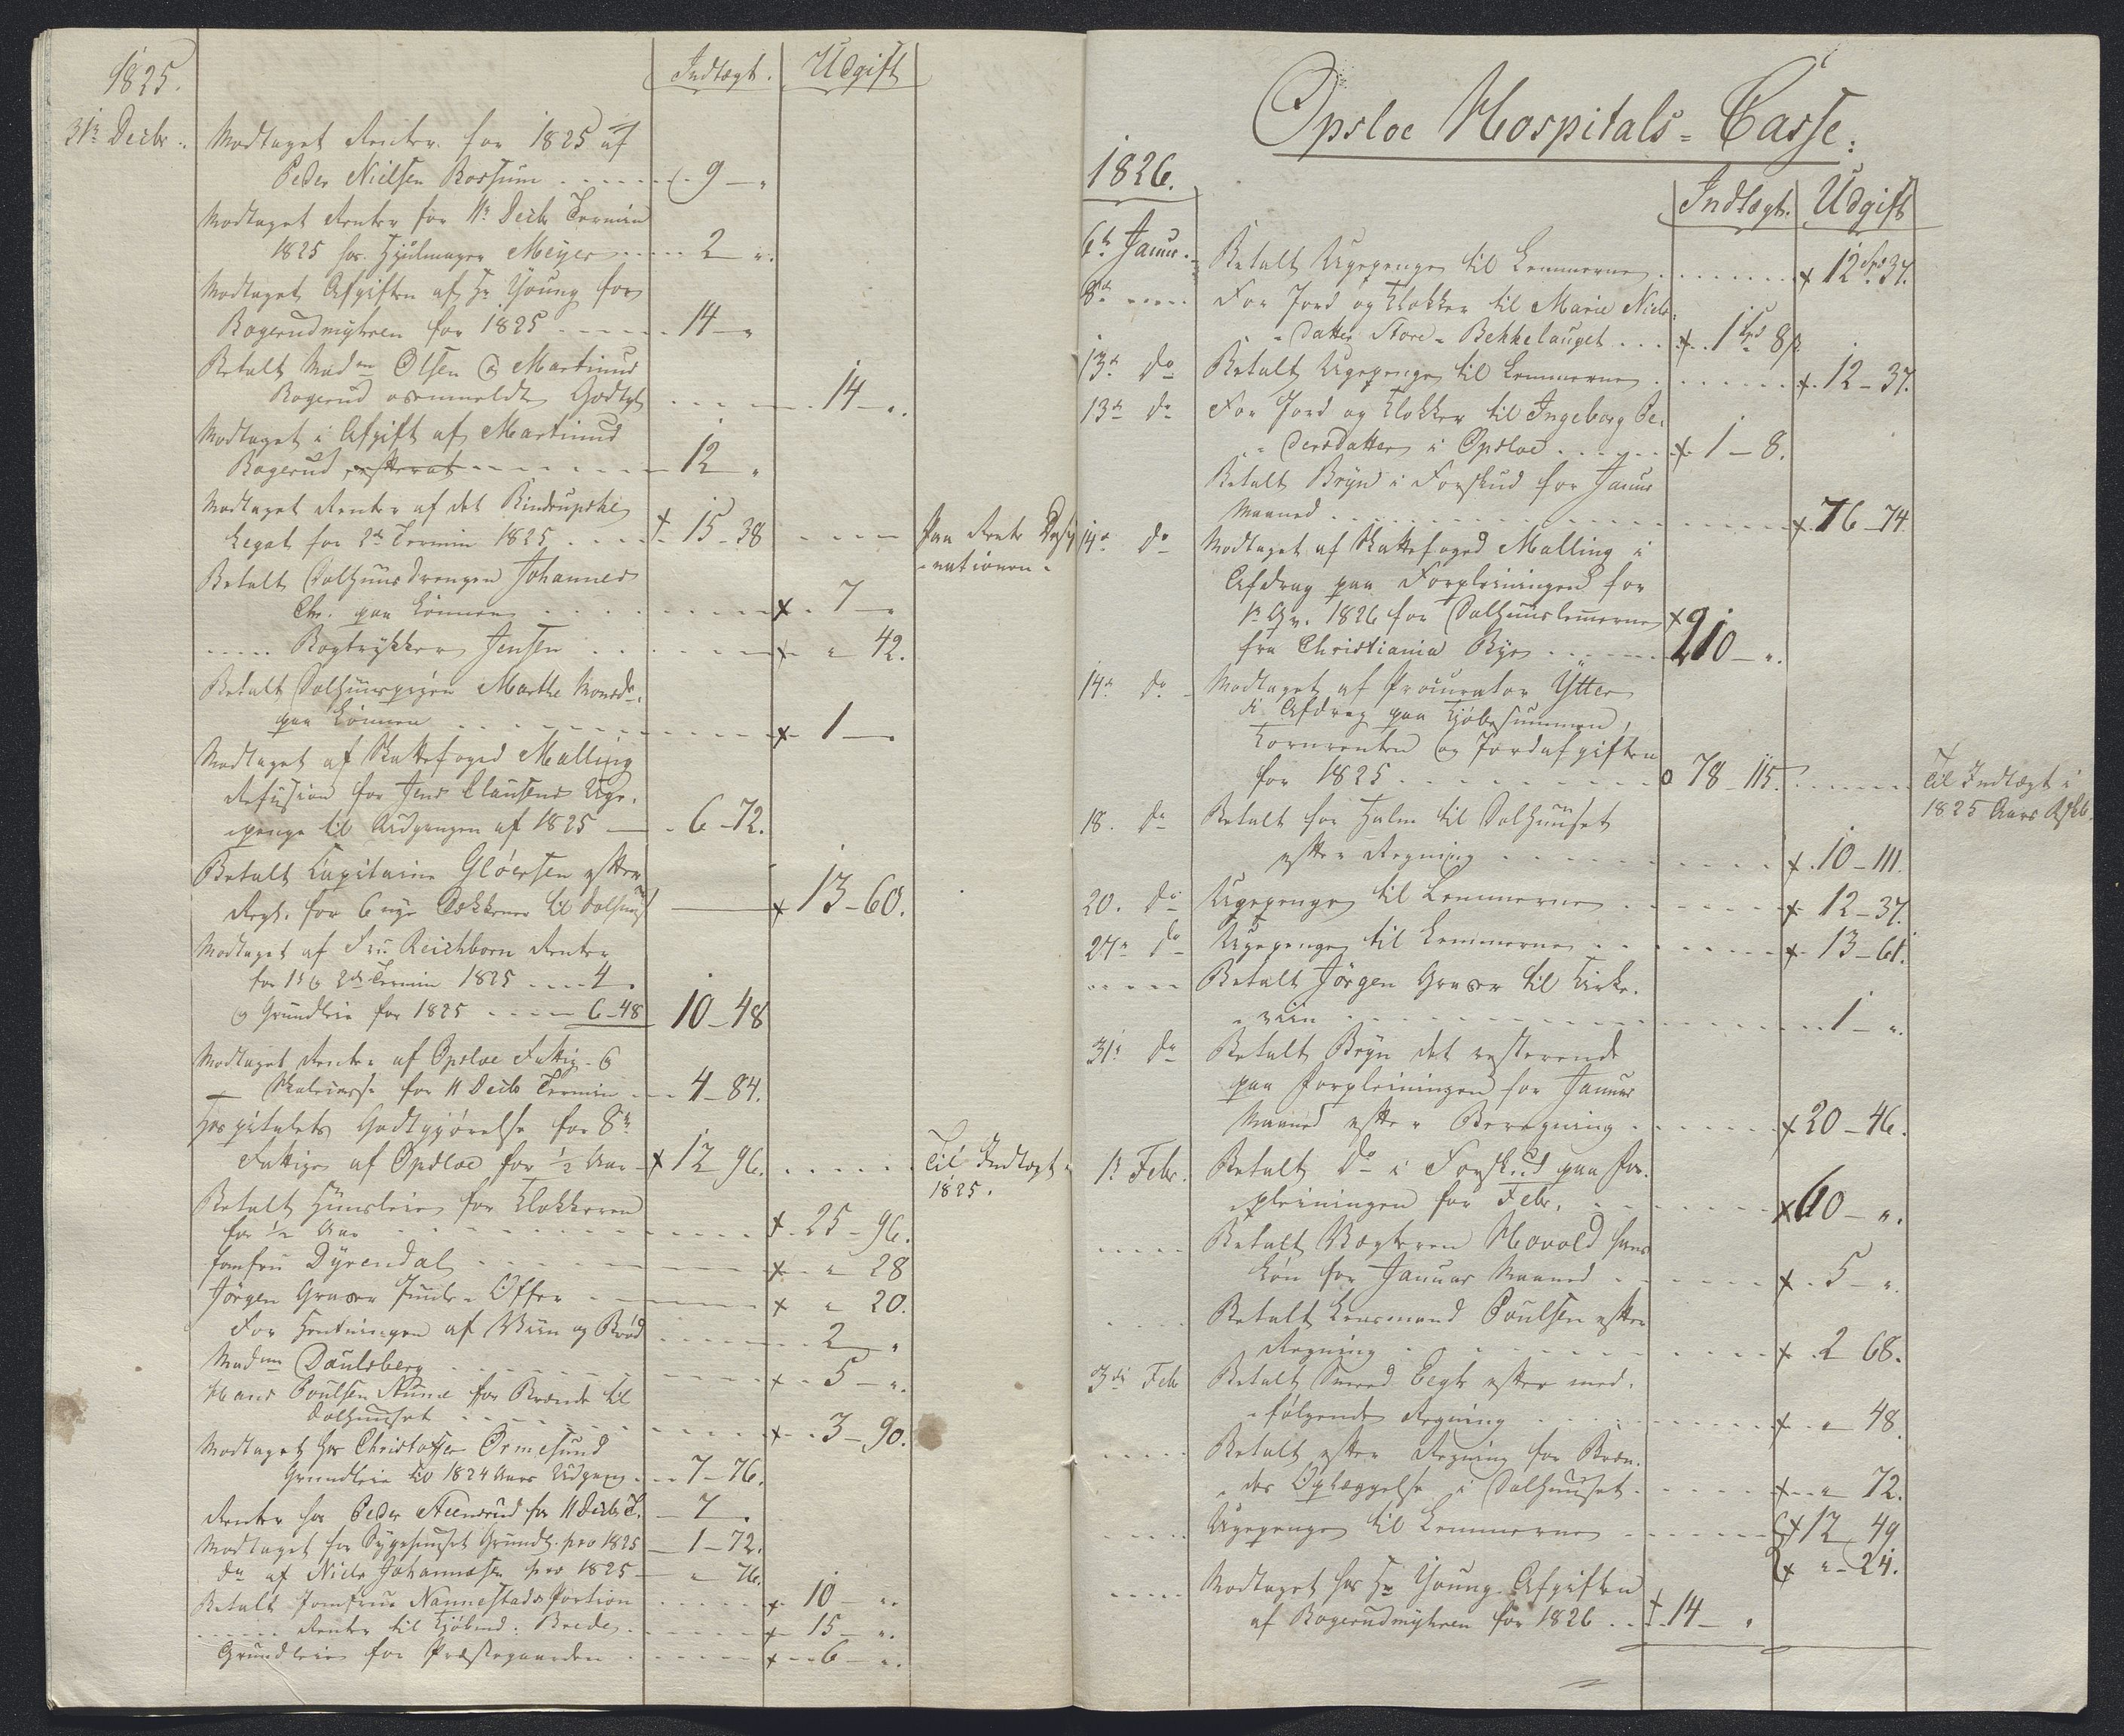 1825.
Indtægt. Udgift
31te Decbr. Modtaget Renter for 1825 af
Peder Nielsen Rossum 9 — "
Modtaget Renter for 11te Decbr Termin
1825 hos Hjulmager Meyer 2 "
Modtaget Afgiften af Hr Young for
Bogerudmyhren for 1825 14 — "
Betalt Madme Olsen & Martinus
Bogerud ovenmeldte Godtgl 14 — "
Modtaget i Afgift af Martinus
Bogerud 12 "
Modtaget Renter af det Rindrupske
Legat for 2den Termin 1825 15 - 38 Paa Rente Desig
nationen
Betalt Dolhuusdrengen Johannes
Chr. paa Lønnen x 7 — "
Bogtrykker Jensen x " 42.
Betalt Dolhuuspigen Marthe Monsdr.
paa Lønnen x 1 —
Modtaget af Skattefoged Malling
Refusion for Jens Clausens Uge-
penge til Udgangen af 1825 — 6 - 72.
Betalt Capitaine Gløersen efter
Regn. for 6 nye Dækkener til Dolhuus x 13 - 60.
Modtaget af Fru Reichborn Renter
for 1ste & 2den Termin 1825 4 "
& Grundleie for 1825 6 - 48 10 - 48
Modtaget Renter af Opsloe Fattig- &
Skolecasse for 11 Decbr Termin 4 - 84.
Hospitalets Godtgjørelse for 8te
Fattige af Opsloe for ½ Aar x 12 96. Til Indtægt
1825.
Betalt Huusleie for Klokkeren
for ½ Aar x 25 - 96.
Jomfru Dyrendal x " 28
Jørgen Graver Juule-Offer x " 20.
For Hentningen af Viin og Brød 2 "
Madme Daulsberg x 5 — "
Hans Poulsen Nune for Brænde til
Dolhuuset x 3 - 90.
Modtaget hos Christoffer Ormesund
Grundleie til 1824 Aars Udgang 7 - 76.
Renter hos Peder Steensrud for 11 Decbr T. 7.
Modtaget for Sygehuuset Grundl. pro 1825 1 - 72.
Do af Niels Johannesen pro 1825 " 76.
Betalt Jomfrue Nannestads Portion x 10 — "
Renter til Kjøbmd. Brede x 15 — "
Grundleie for Præstegaarden x 6 — "
Opsloe Hospitals-Casse.
1826.
Indtægt. Udgift
6te Januar. Betalt Ugepenge til Lemmerne x 12 Spd 37.
8de For Jord og Klokker til Marie Niels-
datter Store-Bekkelauget x 1 Spd 8 ß
13de Do Betalt Ugepenge til Lemmerne x 12 - 37.
13de Do For Jord og Klokker til Ingeborg Pe-
dersdatter i Opsloe x 1 - 8.
Betalt Bryn i Forskud for Januar
Maaned x 76 - 74
14de Do Modtaget af Skattefoged Malling i
Afdrag paa Forpleiningen for
1ste Qv. 1826 for Dolhuuslemmerne
fra Christiania Bye x 210 — "
14de Do Modtaget af Procurator Ytter
i Afdrag paa Kjøbesummen,
Kornrenten og Jordafgiften
for 1825 o 78 - 115. Til Indtægt i
1825 Aars Rgskb.
18. Do Betalt for Halm til Dolhuuset
efter Regning x 10 - 111.
20. Do Ugepenge til Lemmerne x 12 - 37.
27de Do Ugepenge til Lemmerne x 13 - 61.
Betalt Jørgen Graver til Kirke-
viin 1 — "
31te Do Betalt Bryn det resterende
paa Forpleiningen for Januar
Maaned efter Beregning x 20 - 46.
1ste Febr. Betalt Do i Forskud paa For-
pleiningen for Febr. x 60 — "
Betalt Vægteren Hovold hans
Løn for Januar Maaned x 5 — "
Betalt Lensmand Poulsen efter
Regning x 2 68.
3die Feb Betalt Smed Eegh efter med-
følgende Regning x " 48.
Betalt efter Regning for Bræn-
des Oplæggelse i Dolhuuset x " 72.
Ugepenge til Lemmerne x 12 49
x " - 24.
Modtaget hos Hr Young Afgiften
af Bogerudmyhren for 1826 14 — "